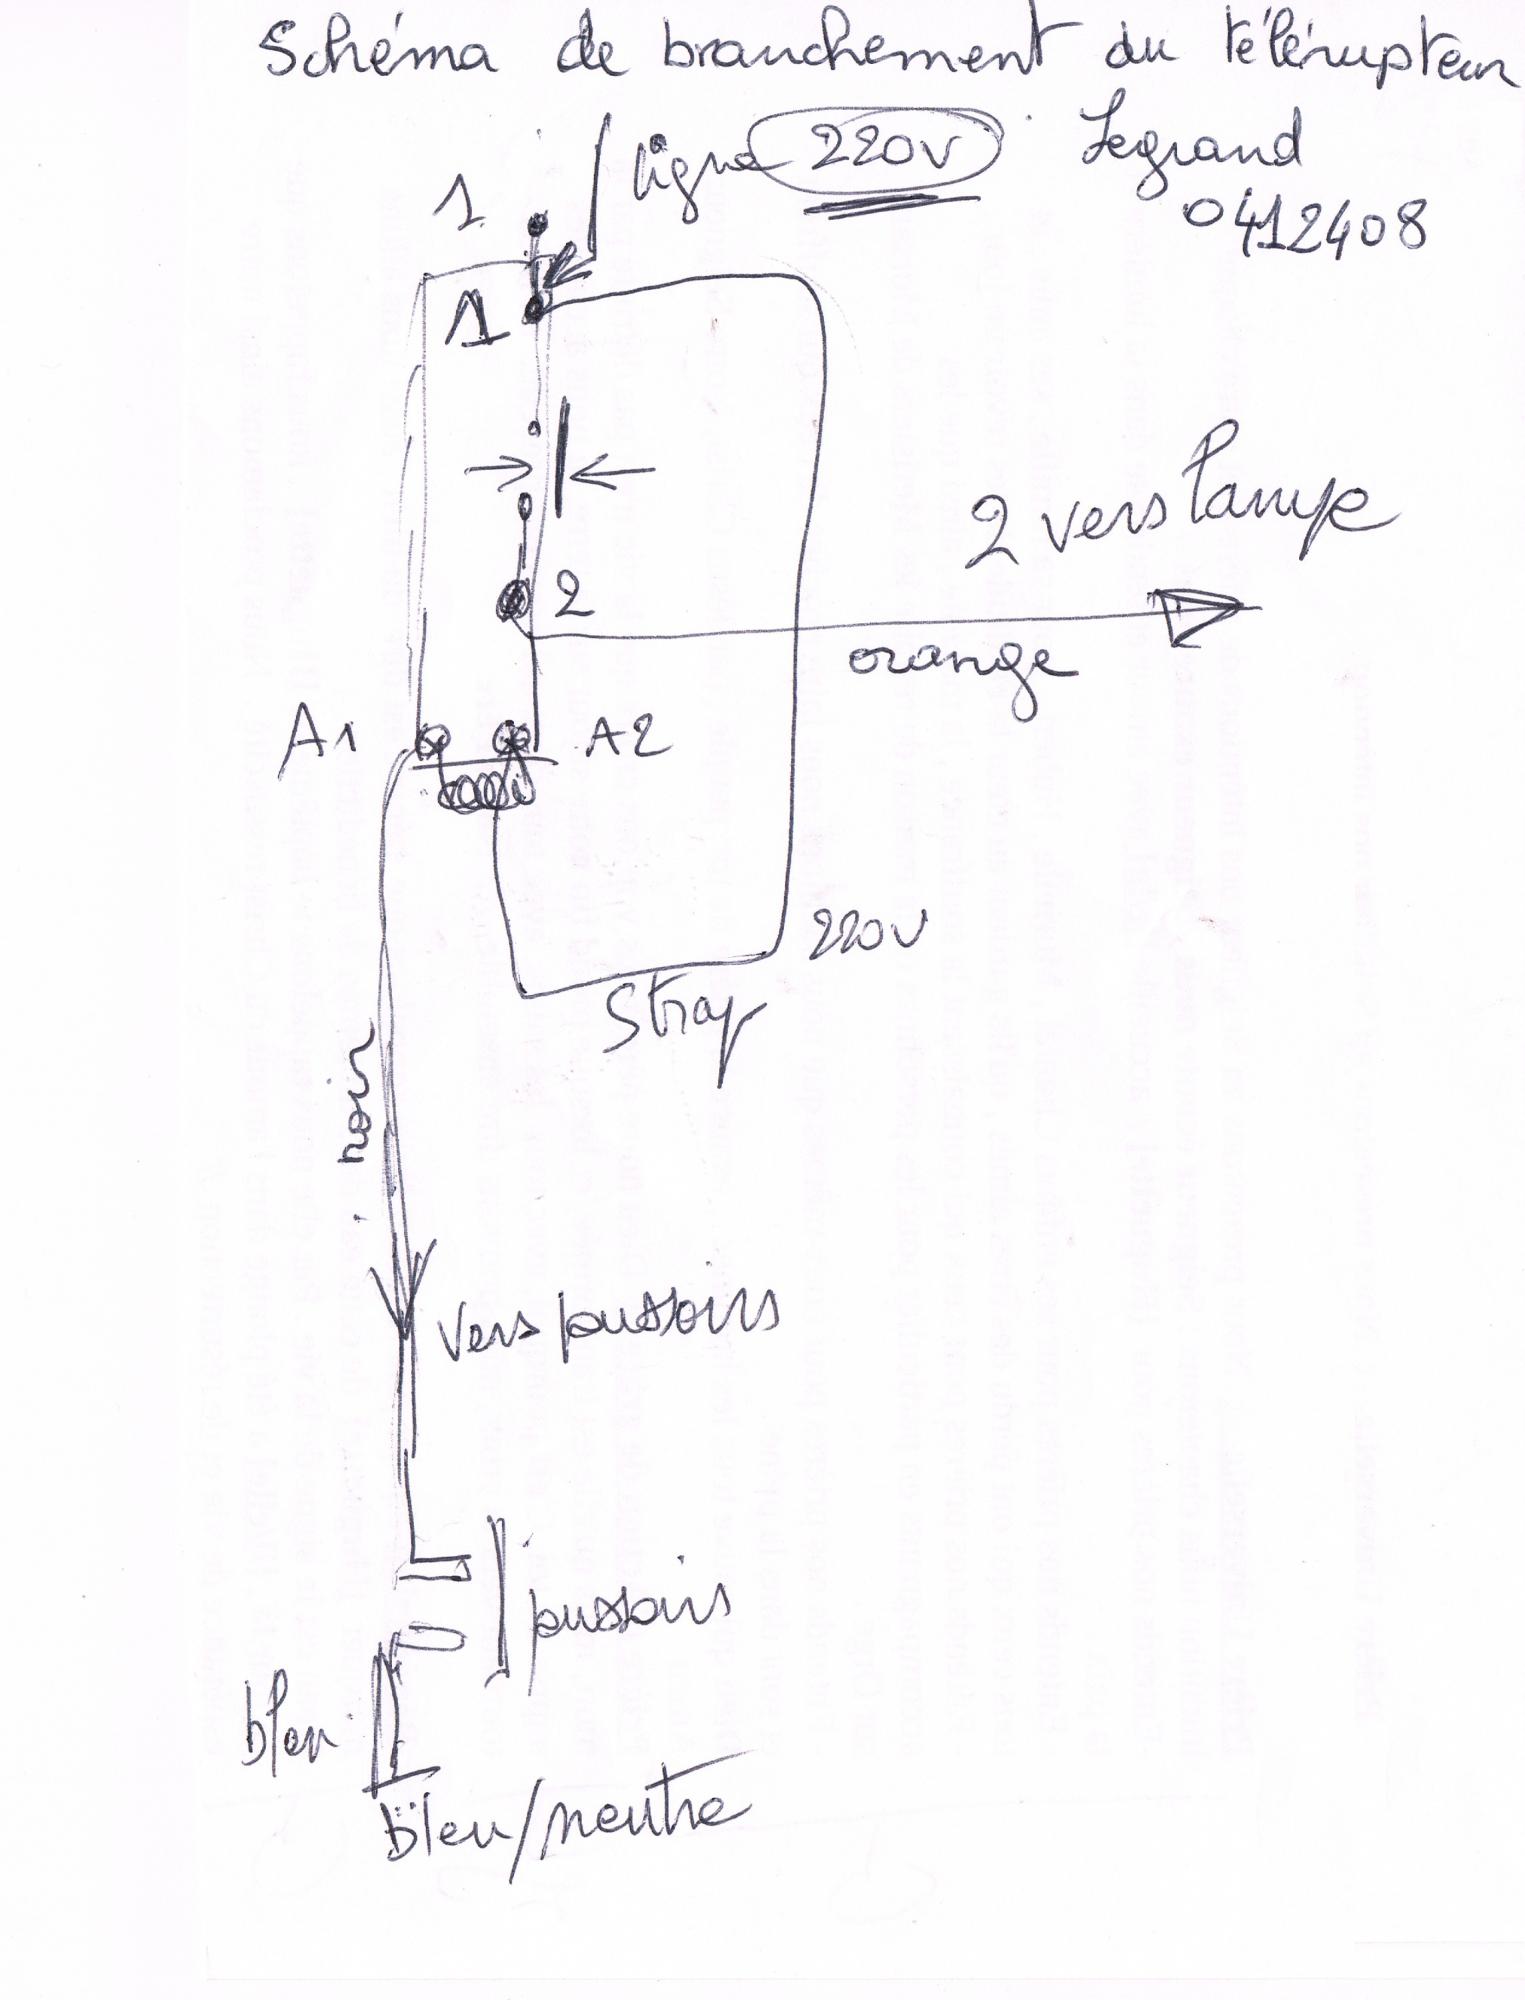 Schéma de branchement du télérupteur
ligne 220V Legrand
0412408
1
1
2 vers lampe
2
orange
A1
A2
220V
Strap
noir
vers pussoirs
pussoirs
bleu
bleu/neutre